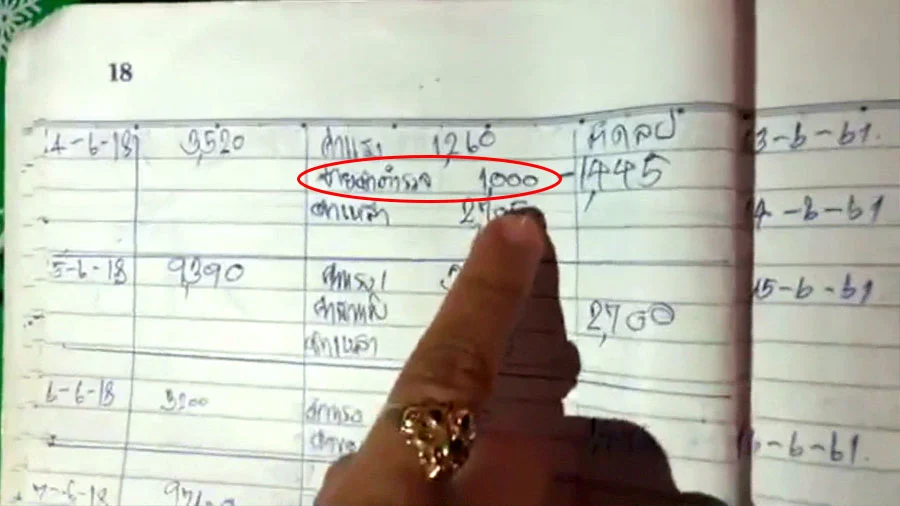 18
4-6-18 3,520 ค่าแรง 1,260 ติดลบ 3-6-61.
จ่ายค่าตำรวจ 1,000 -1,445
ค่าเหล้า 2,705 4-6-61
5-6-18 9,390 ค่าแรง 5-6-61
2,700
ค่าเหล้า
6-6-18 3200 ค่าแรง
6-6-61.
7-6-18